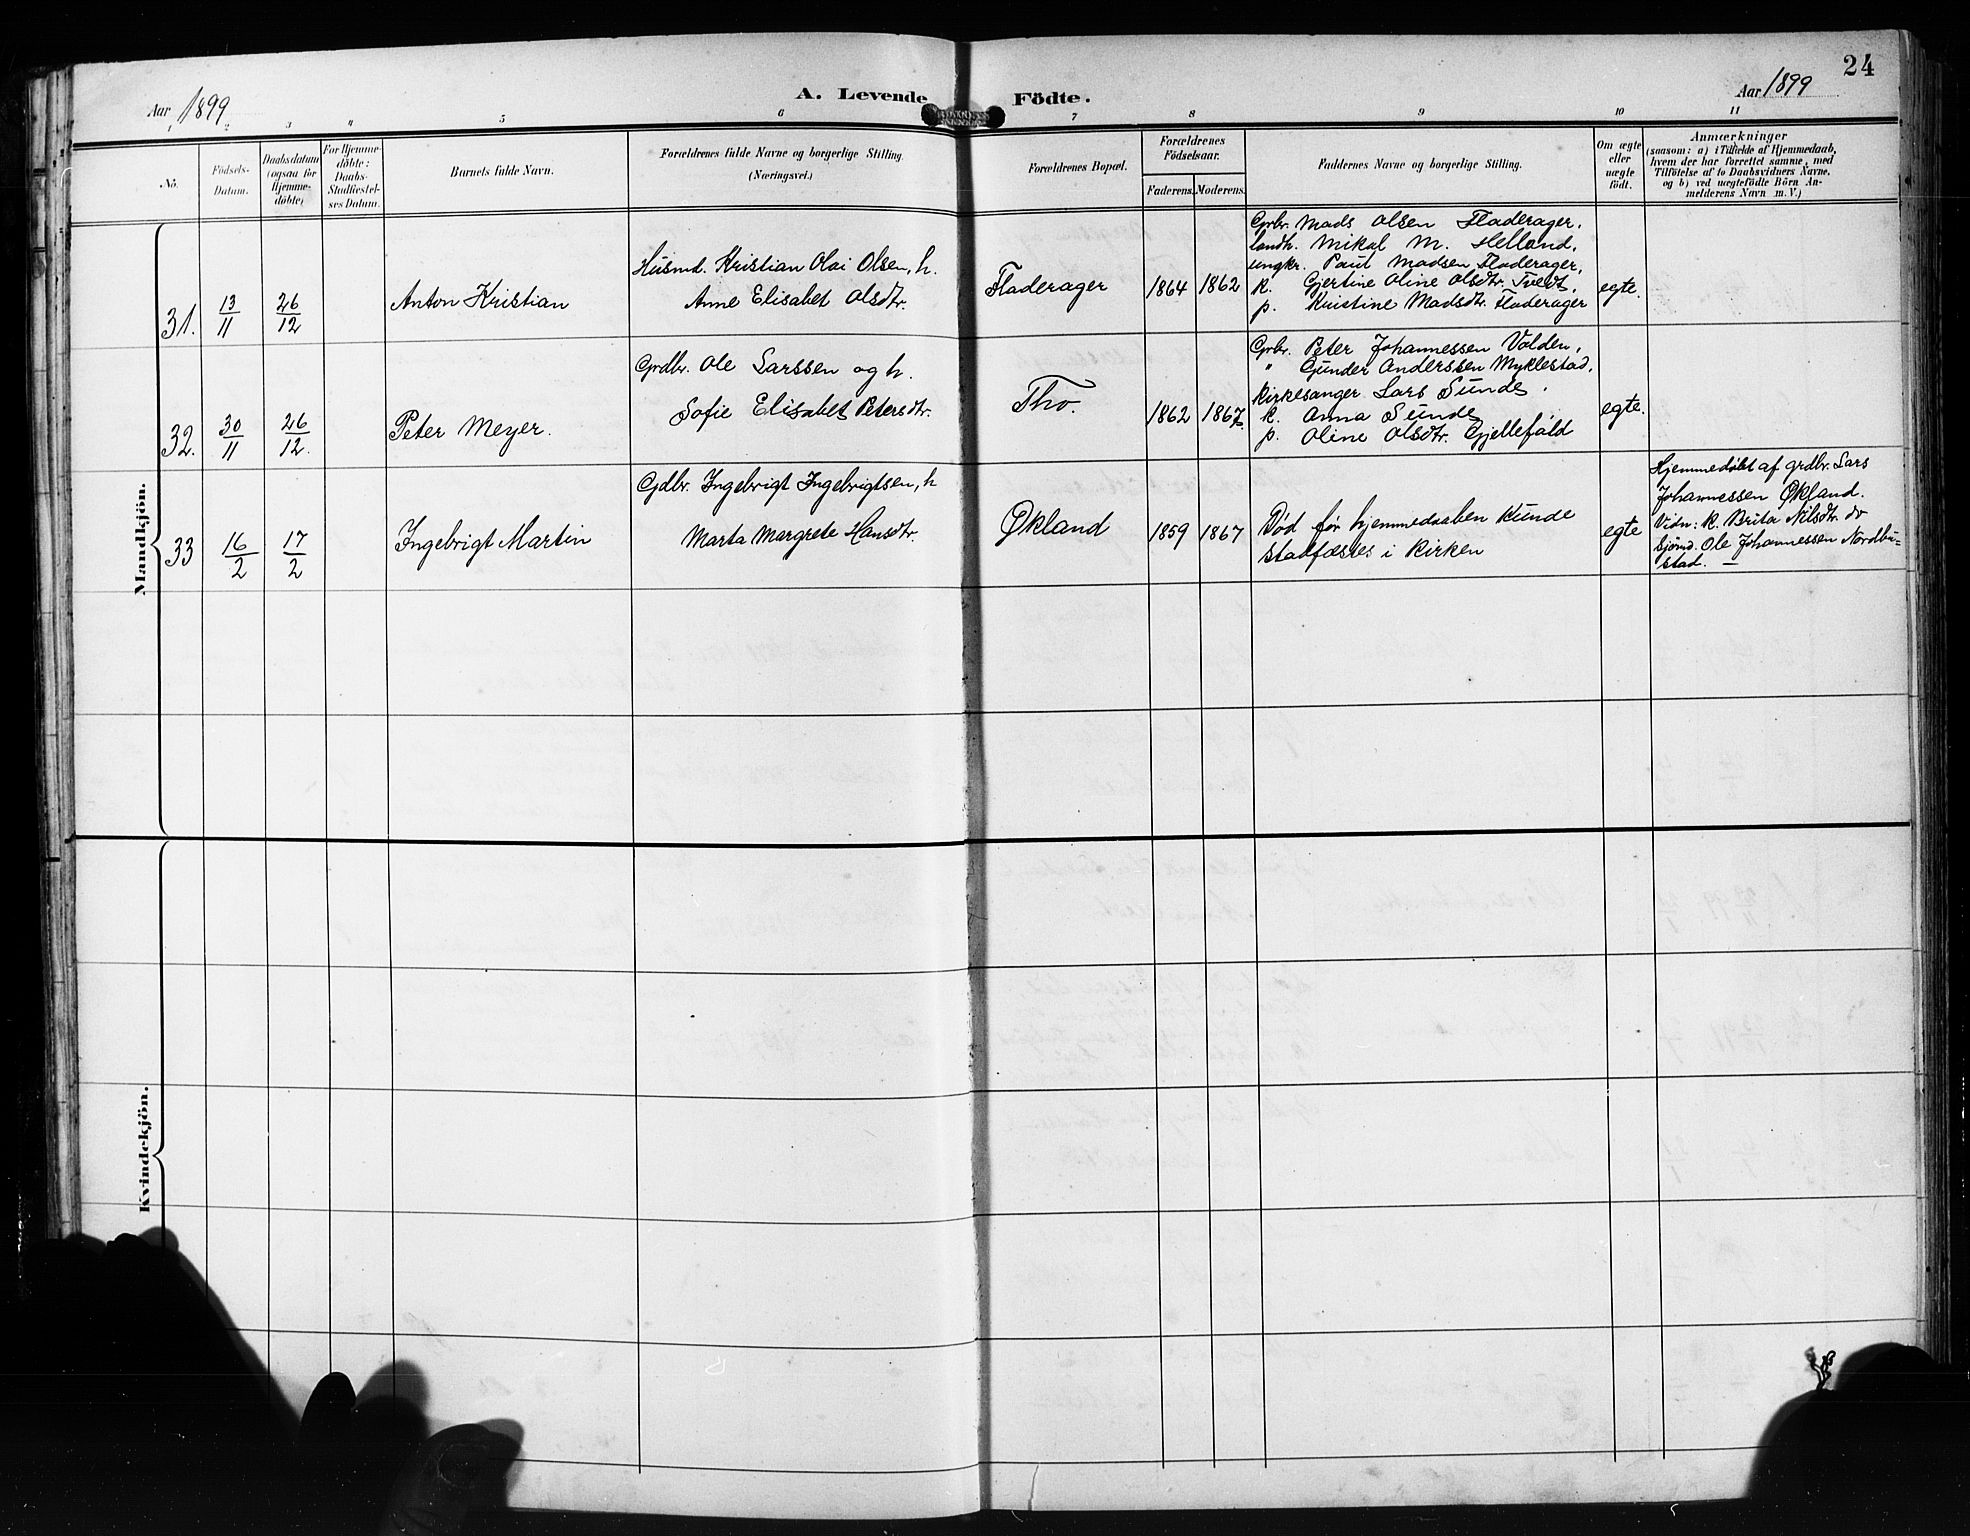 24
Aar 1899
A. Levende Födte.
Aar 1899
1 2 3 4 5 6 7 8 9 10 11
No.
Födsels-
Datum.
Daabsdatum
(ogsaa for
Hjemme-
döbte)
For Hjemme-
döbte:
Daabs-
Stadfæstel-
ses Datum.
Barnets fulde Navn.
Forældrenes fulde Navne og borgerlige Stilling.
(Næringsvei.)
Forældrenes Bopæl.
Forældrenes
Födselsaar.
Faderens. Moderens.
Faddernes Navne og borgerlige Stilling.
Om ægte
eller
uægte
födt.
Anmærkninger
(saasom: a) i Tilfælde af Hjemmedaab,
hvem der har forrettet samme, med
Tilföielse af to Daabsvidners Navne.
og b) ved uægtefödte Börn An-
melderens Navn m. V.)
Mandkjön.
31.
13/11
26/12
Anton Kristian
Husmd. Kristian Olai Olsen, h.
Anne Elisabet Olsdtr.
Fladerager
1864 1862
Grbr. Mads Olsen Fladerager,
landh. Mikal M. Helland,
ungkr. Paul Madsen Fladerager,
k. Gjertine Oline Olsdtr. Tvedt,
p. Kristine Madsdtr. Fladerager
egte.
32.
30/11
26/12.
Peter Meyer.
Grdbr. Ole Larssen og h.
Sofie Elisabet Petersdtr.
Tho.
1862 1867
Grbr. Peter Johannessen Valden,
" Gunder Anderssen Myklestad,
Kirkesanger Lars Sunde,
k. Anna Sunde
p. Oline Olsdtr. Gjellefald
egte.
33
16/2
17/2
Ingebrigt Martin
Gdbr. Ingebrigt Ingebrigtsen, h
Marta Margrete Hansdtr.
Økland
1859 1867
Død før hjemmedaaben kunde
stadfæstes i kirken
egte
Hjemmedøbt af grdbr. Lars
Johannessen Økland.
Vidn: k. Brita Nilsdtr. do
Sjömd. Ole Johannessen Nordbu-
stad. —
Kvindekjön.